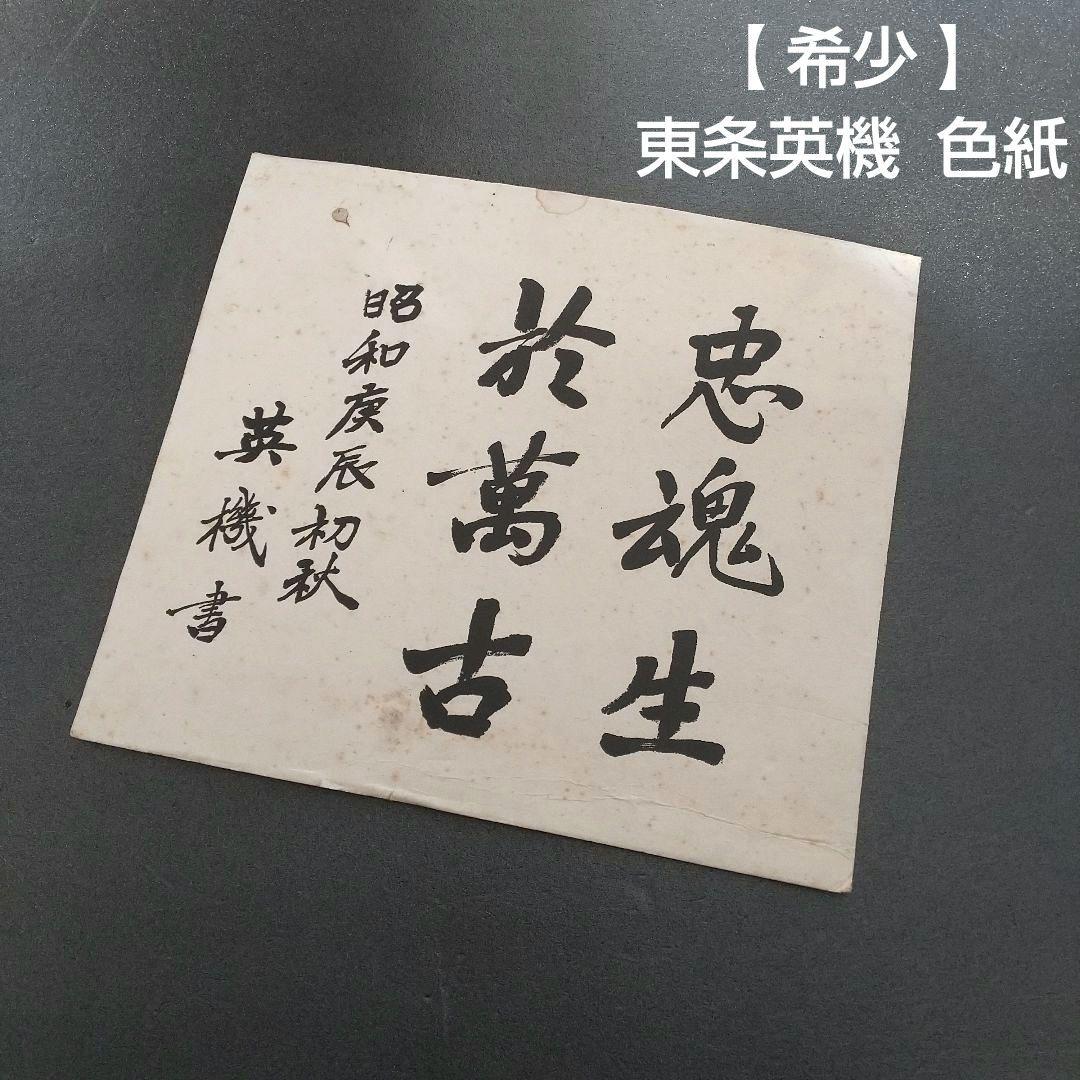 【 希少 】
東条英機 色紙
忠魂生
於萬古
昭和庚辰初秋
英機書